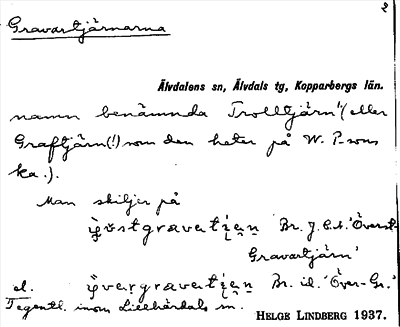 2
Gravartjärnarna
Älvdalens sn, Älvdals tg, Kopparbergs län.
namn benämnda Trolltjärn /(eller
Graftjärn(!) som den heter på W. P-sons
ka.).
Man skiljer på
Br. J. E. A. 'Överst-
Gravartjärn'
el. Br. id. 'Över-Gr.'
Tegentl. inom Lillhärdals sn.
HELGE LINDBERG 1937.